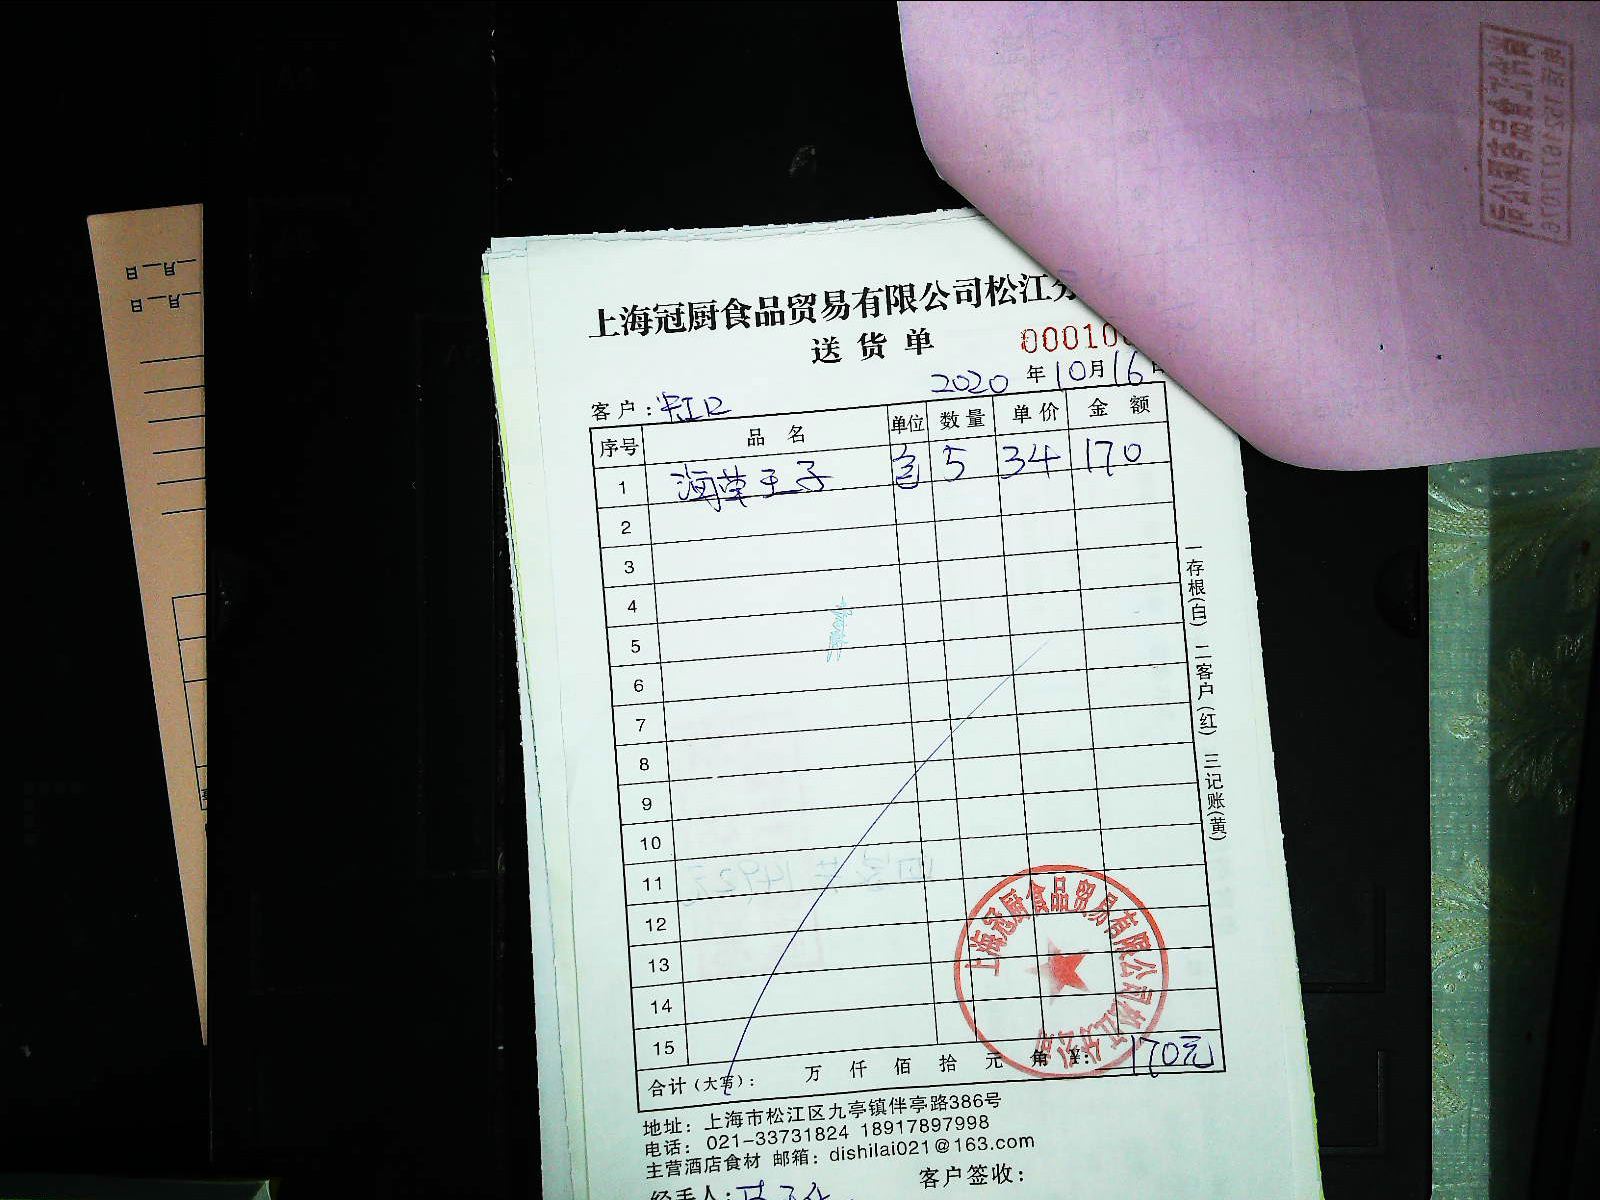 上海冠厨食品贸易有限公司松江
送货单
00010
2020年10月16日
客户:
序号 品名 单位 数量 单价 金额
1 海草王子 包 5 34 170
2
3
4
5
6
7
8
9
10
11
12
13
14
15
合计(大写): 万 仟 佰 拾 元 角 ¥: 170元
一存根(白) 二客户(红) 三记账(黄)
上海冠厨食品贸易有限公司松江分公司
地址: 上海市松江区九亭镇伴亭路386号
电话: 021-33731824 18917897998
主营酒店食材 邮箱: dishilai021@163.com
客户签收:
经手人:
月 日
月 日